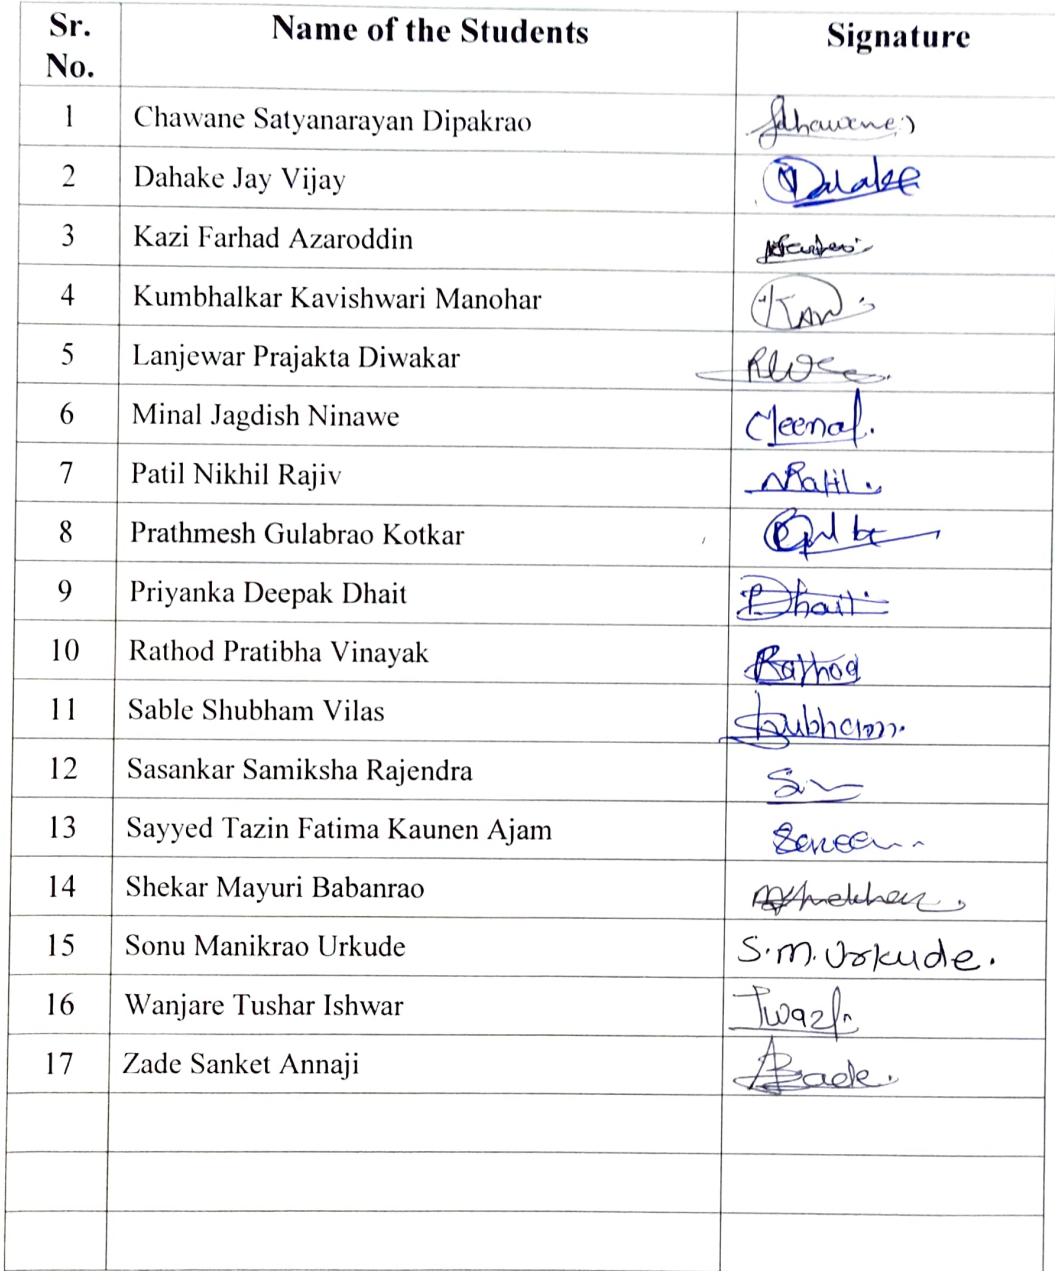 Sr. No. Name of the Students Signature
1 Chawane Satyanarayan Dipakrao
2 Dahake Jay Vijay
3 Kazi Farhad Azaroddin
4 Kumbhalkar Kavishwari Manohar
5 Lanjewar Prajakta Diwakar
6 Minal Jagdish Ninawe Meenal.
7 Patil Nikhil Rajiv NPatil.
8 Prathmesh Gulabrao Kotkar
9 Priyanka Deepak Dhait PDhait
10 Rathod Pratibha Vinayak Rathod
11 Sable Shubham Vilas Shubham.
12 Sasankar Samiksha Rajendra
13 Sayyed Tazin Fatima Kaunen Ajam
14 Shekar Mayuri Babanrao
15 Sonu Manikrao Urkude S.M.Urkude.
16 Wanjare Tushar Ishwar
17 Zade Sanket Annaji